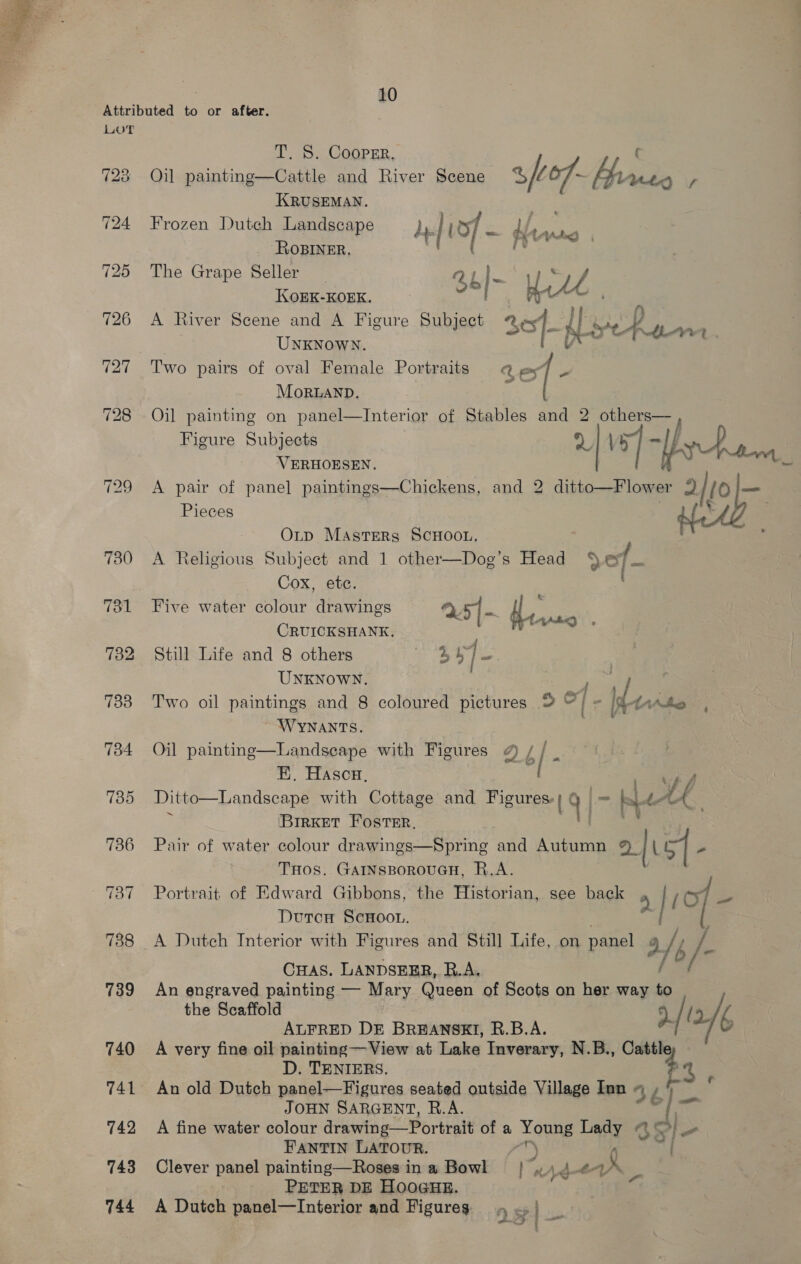 10
Attributed to or after.
LOT
T. S. COOPER.
723 Oil painting—Cattle and River Scene 3/10/-
KRUSEMAN.
724 Frozen Dutch Landscape 4/10/-
ROBINER.
725 The Grape Seller 36/- Hill
KOEK-KOEK.
726 A River Scene and A Figure Subject 20/-
UNKNOWN.
727 Two pairs of oval Female Portraits 20/-
MORLAND.
728 Oil painting on panel—Interior of Stables and 2 others—
Figure Subjects 2/15/-
VERHOESEN.
729 A pair of panel paintings—Chickens, and 2 ditto—Flower 2/10/-
Pieces Hill
OLD MASTERS SCHOOL.
730 A Religious Subject and 1 other—Dog's Head
COX, etc.
731 Five water colour drawings 25/-
CRUICKSHANK.
732 Still Life and 8 others 35/-
UNKNOWN.
733 Two oil paintings and 8 coloured pictures
WYNANTS.
734 Oil painting—Landscape with Figures
E. HASCH.
735 Ditto—Landscape with Cottage and Figures Hill
BIRKET FOSTER.
736 Pair of water colour drawings—Spring and Autumn 2/15/-
THOS. GAINSBOROUGH, R.A.
737 Portrait of Edward Gibbons, the Historian, see back 2/10/-
DUTCH SCHOOL.
738 A Dutch Interior with Figures and Still Life, on panel
CHAS. LANDSEER, R.A.
739 An engraved painting — Mary Queen of Scots on her way to
the Scaffold 2/12/6
ALFRED DE BREANSKI, R.B.A.
740 A very fine oil painting—View at Lake Inverary, N.B., Cattle
D. TENIERS.
741 An old Dutch panel—Figures seated outside Village Inn
JOHN SARGENT, R.A.
742 A fine water colour drawing—Portrait of a Young Lady
FANTIN LATOUR.
743 Clever panel painting—Roses in a Bowl
PETER DE HOOGHE.
744 A Dutch panel—Interior and Figures